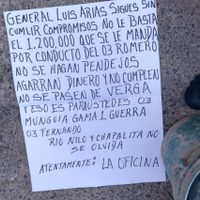 GENERAL LUIS ARIAS SIGUES SIN
CUMLIR COMPROMISOS NO LE BASTA
EL 1.200,000 QUE SE LE MANDA
POR CONDUCTO DEL 03 ROMERO
NO SE HAGAN PENDEJOS
AGARRAN DINERO Y NO CUMPLEN
NO SE PASEN DE VERGA
Y ESO ES PARA USTEDES 03
MUNGUIA GAMA 1 GUERRA
03 FERNANDO
RIO NILO Y CHAPALITA NO
SE OLVIDA
ATENTAMENTE: LA OFICINA